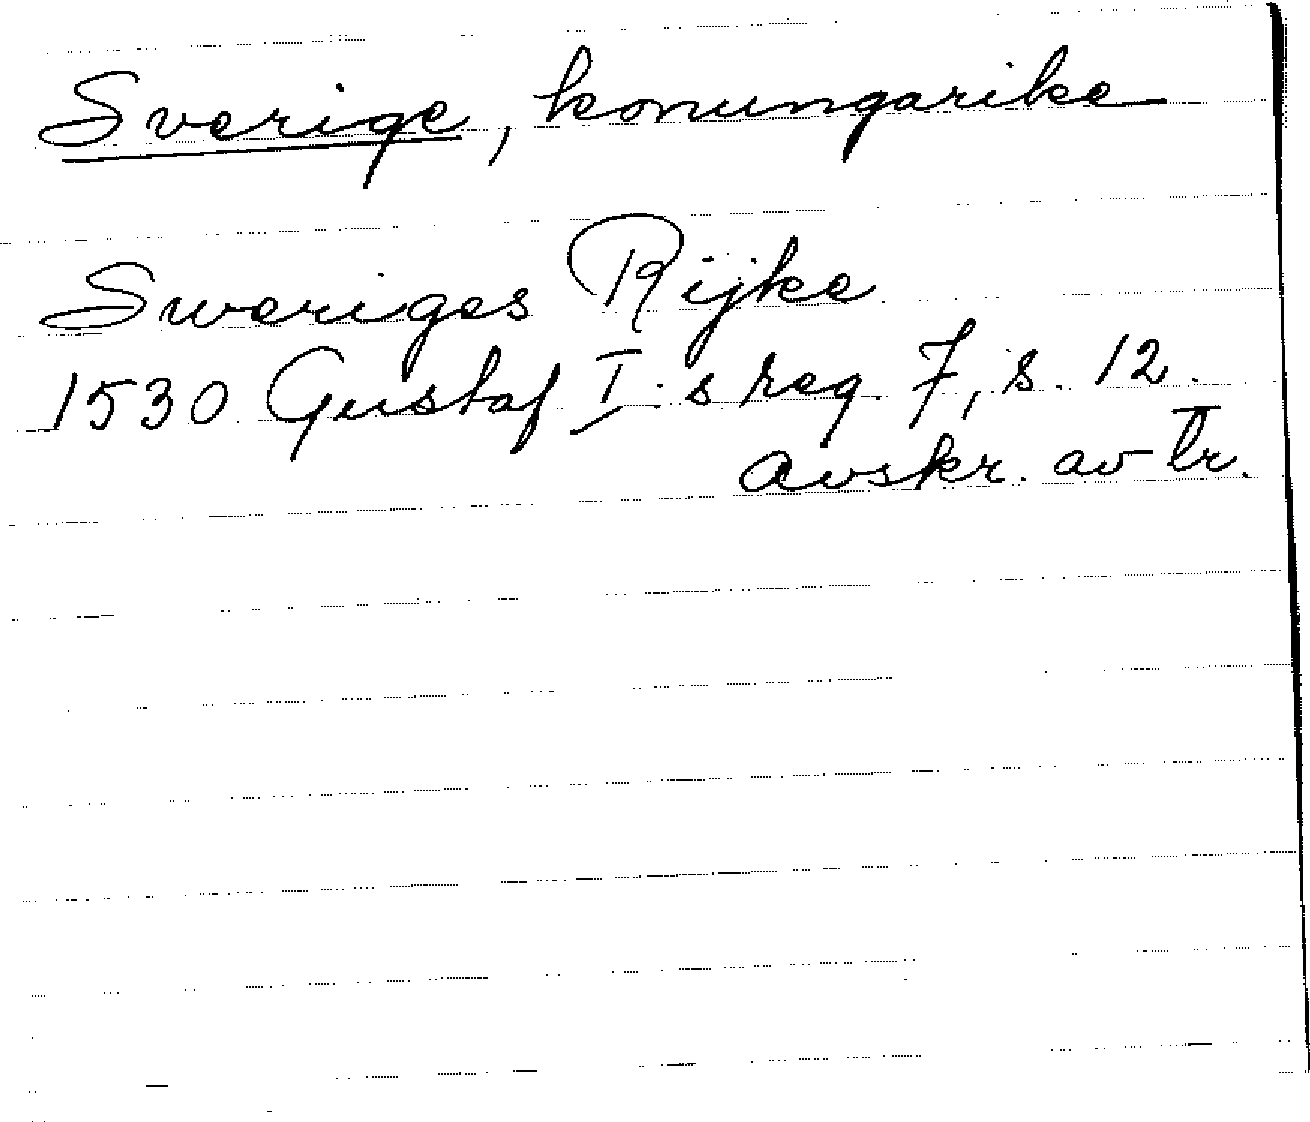 Sverige, konungarike
Sweriges Rijke
1530 Gustaf I:s reg 7, s. 12.
avskr. av tr.